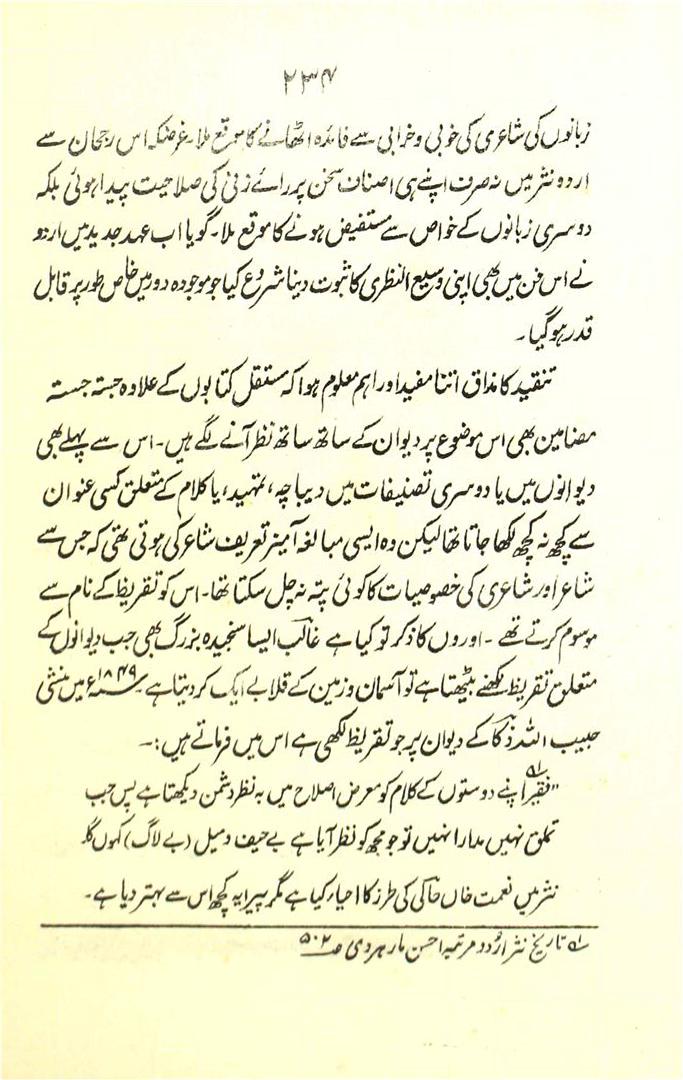 ۲۳۴
زبانوں کی شاعری کی خوبی و خرابی سے فائدہ اٹھانے کا موقع ملا۔ غرضکہ اس رجحان سے
اردو نثر میں نہ صرف اپنے ہی اصناف سخن پر رائے زنی کی صلاحیت پیدا ہوئی بلکہ
دوسری زبانوں کے خواص سے مستفیض ہونے کا موقع ملا۔ گویا اب عہد جدید میں اردو
نے اس فن میں بھی اپنی وسیع النظری کا ثبوت دینا شروع کیا جو موجودہ دور میں خاص طور پر قابل
قدر ہو گیا۔
تنقید کا مذاق اتنا مفید اور اہم معلوم ہوا کہ مستقل کتابوں کے علاوہ جستہ جستہ
مضامین بھی اس موضوع پر دیوان کے ساتھ ساتھ نظر آنے لگے ہیں۔ اس سے پہلے بھی
دیوانوں میں یا دوسری تصنیفات میں دیباچہ، تمہید، یا کلام کے متعلق کسی عنوان
سے کچھ نہ کچھ لکھا جاتا تھا لیکن وہ ایسی مبالغہ آمیز تعریف شاعر کی ہوتی تھی کہ جس سے
شاعر اور شاعری کی خصوصیات کا کوئی پتہ نہ چل سکتا تھا۔ اس کو تقریظ کے نام سے
موسوم کرتے تھے۔ اوروں کا ذکر تو کیا ہے غالب ایسا سنجیدہ بزرگ بھی جب دیوانوں کے
متعلق تقریظ لکھنے بیٹھتا ہے تو آسمان و زمین کے قلابے ایک کر دیتا ہے۔ ۱۸۴۹ء میں منشی
حبیب اللہ ذکا کے دیوان پر جو تقریظ لکھی ہے اس میں فرماتے ہیں:۔
"فقیر۱؎ اپنے دوستوں کے کلام کو معرض اصلاح میں بہ نظر دشمن دیکھتا ہے پس جب
تملق نہیں مدارا نہیں تو جو مجھ کو نظر آیا ہے بے حیف و میل (بے لاگ) کہوں گا۔
نثر میں نعمت خاں عالی کی طرز کا احیاء کیا ہے مگر پیرایہ کچھ اس سے بہتر دیا ہے۔
۱؎ تاریخ نثر اردو مرتبہ احسن مارہروی صـ ۵۰۲